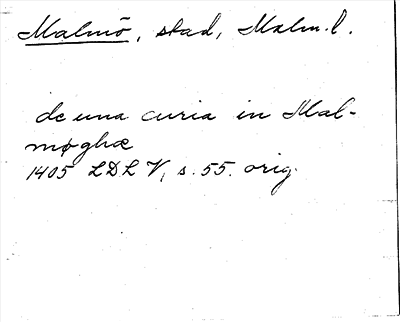 Malmö, stad, Malm.l.
de una curia in Mal-
møghæ
1405 LDL V, s. 55. orig.